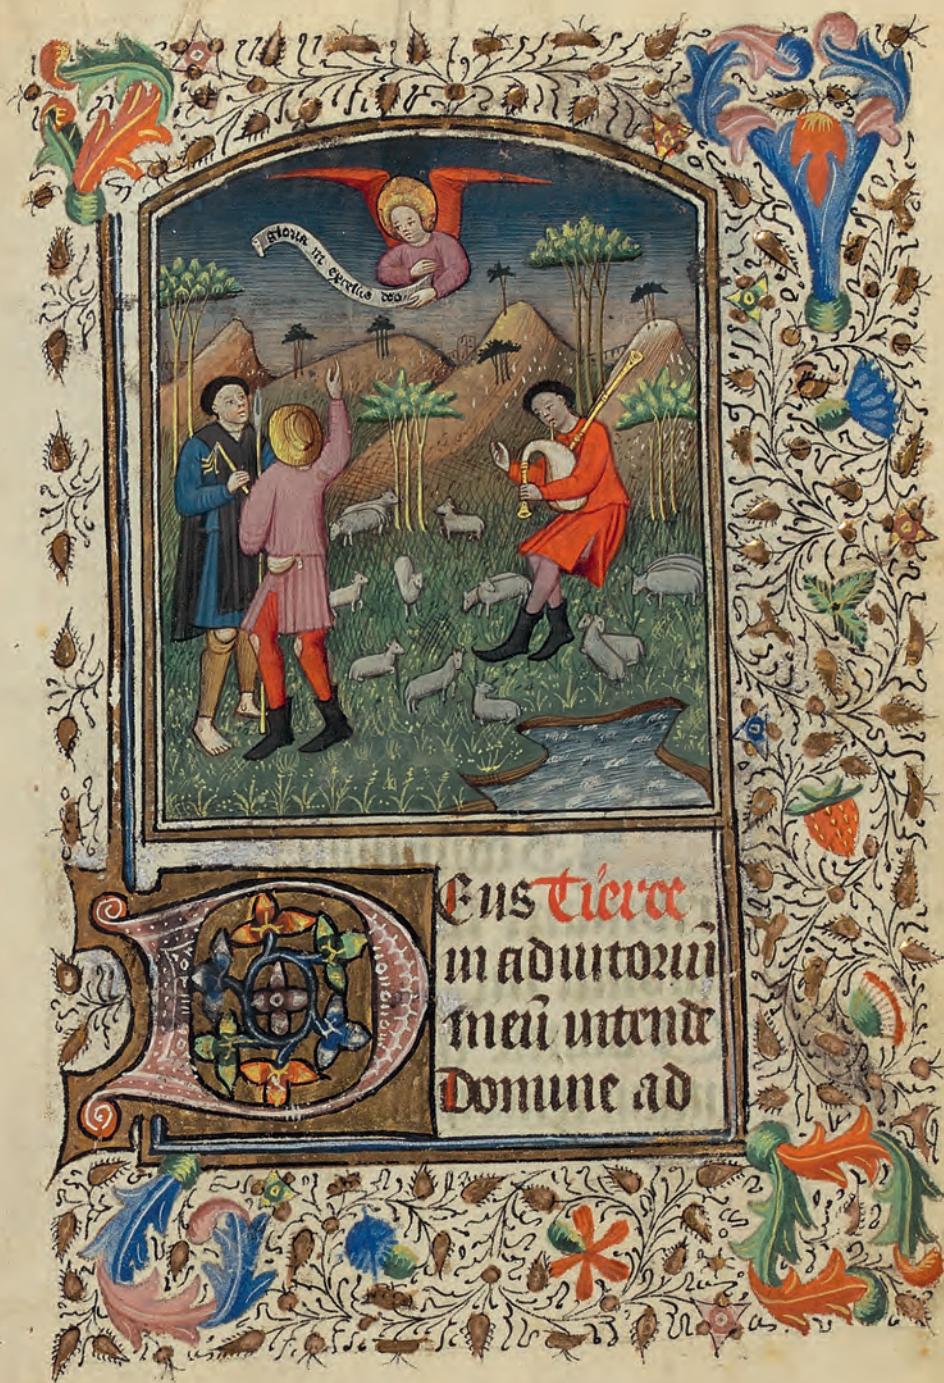 gloria in excelsis deo
Deus Tierce
in adiutoriū
meū intende
Domine ad